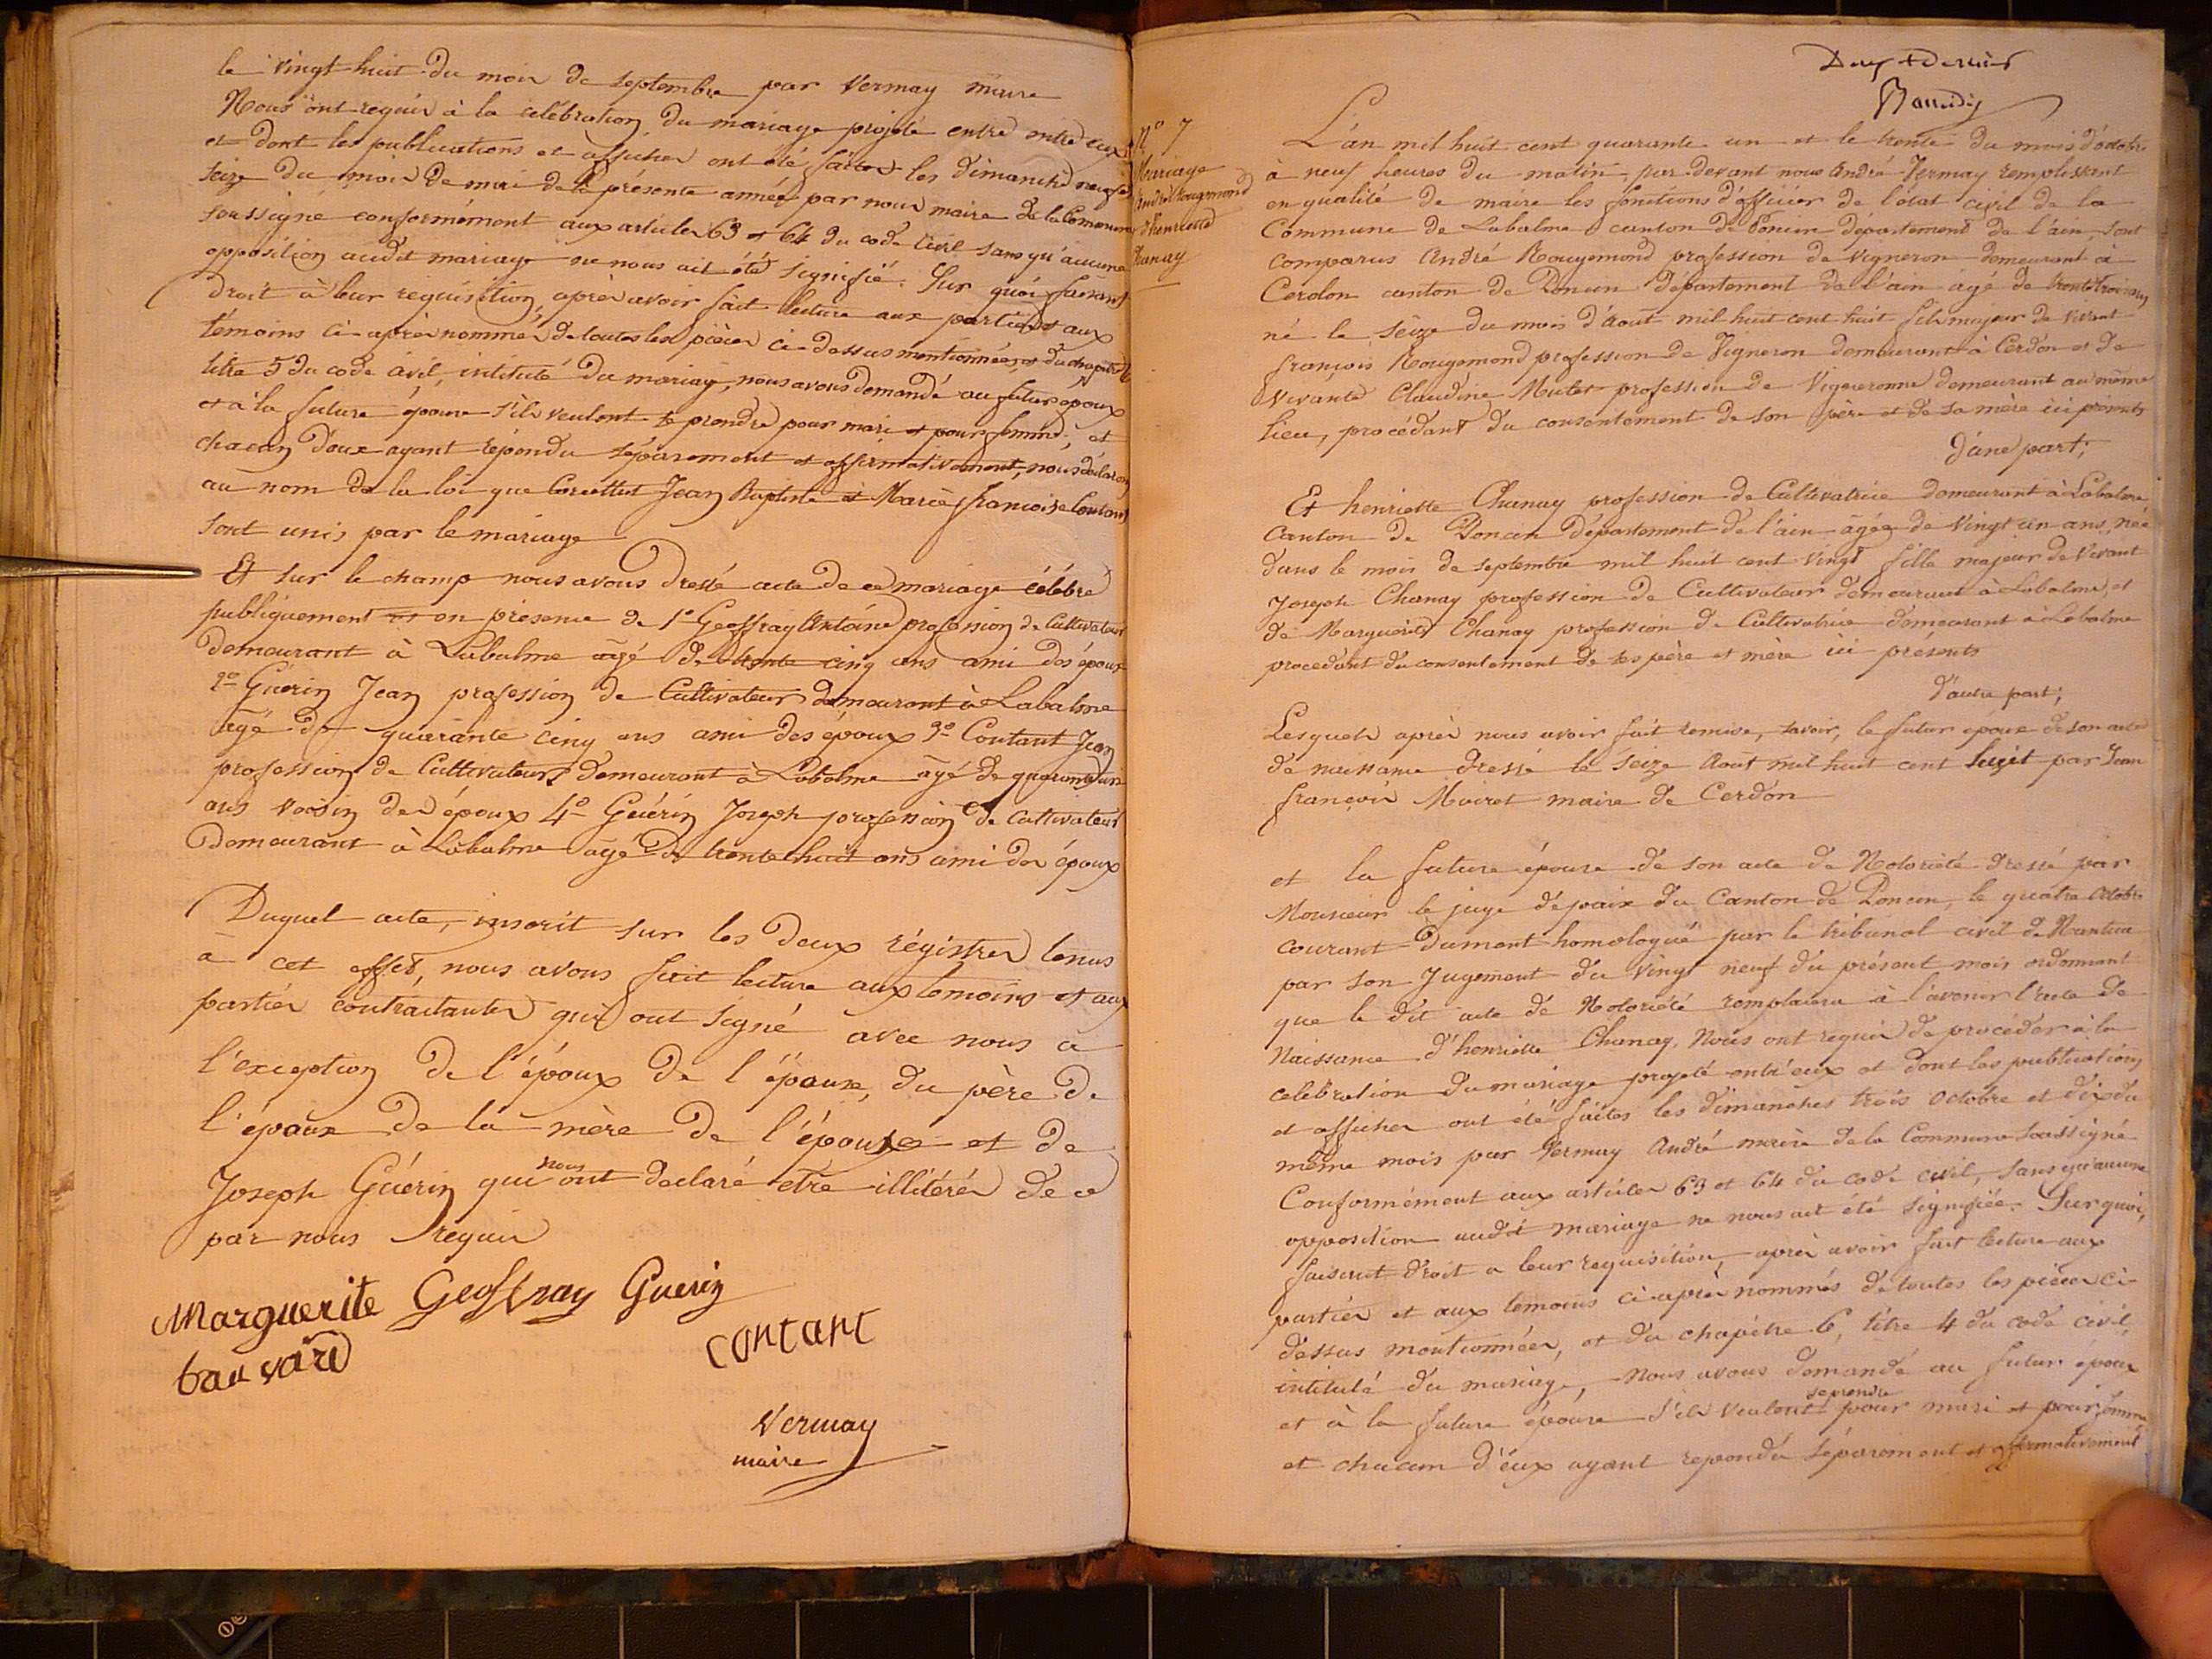 le vingt huit du mois de septembre par Vermay maire
Nous ont requis à la célébration du mariage projeté entre entre eux
et dont les publications et affiches ont été faites les dimanches neuf et
seize du mois de mai de la présente année par nous maire de la Commune
soussigné conformément aux articles 63 et 64 du code Civil sans qu'aucune
opposition audit mariage ne nous ait été signifié. Sur quoi faisant
droit à leur requisition, après avoir fait lecture aux parties et aux
témoins ci-après nommés de toutes les pièces ci-dessus mentionnées, et du chapitre 6
titre 5 du code civil, intitulé du mariage, nous avons demandé au futur époux
et à la future épouse s'ils veulent se prendre pour mari et pour femme, et
chacun d'eux ayant répondu séparement et affirmativement, nous déclarons
au nom de la loi que Jean Baptiste et Marie françoise Contant
sont unis par le mariage
Et sur le champ nous avons dressé acte de ce mariage célébré
publiquement et en présence de 1° Geoffray Antoine profession de Cultivateur
demeurant à Labalme âgé de trente cinq ans ami des époux
2° Guérin Jean profession de Cultivateur demeurant à Labalme
âgé de quarante cinq ans ami des époux 3° Contant Jean
profession de Cultivateur demeurant à Labalme âgé de quarante un
ans voisin des époux 4° Guérin Joseph profession de Cultivateur
demeurant à Labalme âgé de trente huit ans ami des époux
Duquel acte, inscrit sur les deux régistres tenus
à cet effet, nous avons fait lecture aux temoins et aux
parties contractantes qui ont signé avec nous a
l'exception de l'époux de l'épouse, du père de
l'épouse de la mère de l'épouse et de
Joseph Guérin qui nous ont declaré être illitérés de ce
par nous requis
Marguerite Geoffray Guerin
contant
Vermay
maire
N° 7
Mariage
André Rougemond
et henriette
Chanay
L'an mil huit cent quarante un et le trente du mois d'octobre
à neuf heures du matin, par devant nous André Vermay remplissant
en qualité de maire les fonctions d'officier de l'état civil de la
Commune de Labalme canton de Poncin département de l'ain, sont
comparus André Rougemond profession de vigneron demeurant à
Cerdon canton de Poncin département de l'ain âgé de trente trois ans
né le seize du mois d'août mil huit cent huit fils majeur de vivant
françois Rougemond profession de Vigneron demeurant à Cerdon et de
vivante Claudine profession de Vigneronne demeurant au même
lieu, procédant du consentement de son père et de sa mère ici présents
d'une part;
Et henriette Chanay profession de Cultivatrice demeurant à Labalme
Canton de Poncin département de l'ain âgée de vingt un ans, née
dans le mois de septembre mil huit cent vingt fille majeur de vivant
Joseph Chanay profession de Cultivateur demeurant à Labalme, et
de Marguerite Chanay profession de Cultivatrice demeurant à Labalme
procédant du consentement de ses père et mère ici présents
d'autre part;
Lesquels après nous avoir fait remise, savoir, le futur époux de son acte
de naissance dressé le seize Août mil huit cent huit par Jean
françois maire de Cerdon
et la future épouse de son acte de Notoriété dressé par
Monsieur le juge de paix du Canton de Poncin, le quatre Octobre
courant dument homologué par le tribunal civil de Nantua
par son Jugement du vingt neuf du présent mois ordonnant
que le dit acte de Notoriété remplacera à l'avenir l'acte de
Naissance d'henriette Chanay. Nous ont requis de procéder à la
celebration du mariage projeté entr'eux et dont les publications
et affiches ont été faites les dimanches trois Octobre et dix du
même mois par Vermay André maire de la Commune soussigné
Conformément aux articles 63 et 64 du code civil, sans qu'aucune
opposition audit mariage ne nous ait été signifiée. Sur quoi,
faisant droit a leur requisition, après avoir fait lecture aux
parties et aux temoins ci-après nommés de toutes les pièces ci-
dessus mentionnées, et du chapitre 6, titre 4 du code civil
intitulé du mariage, nous avons demandé au futur époux
et à la future épouse s'ils veulent se prendre pour mari et pour femme
et chacun d'eux ayant repondu séparement et affirmativement